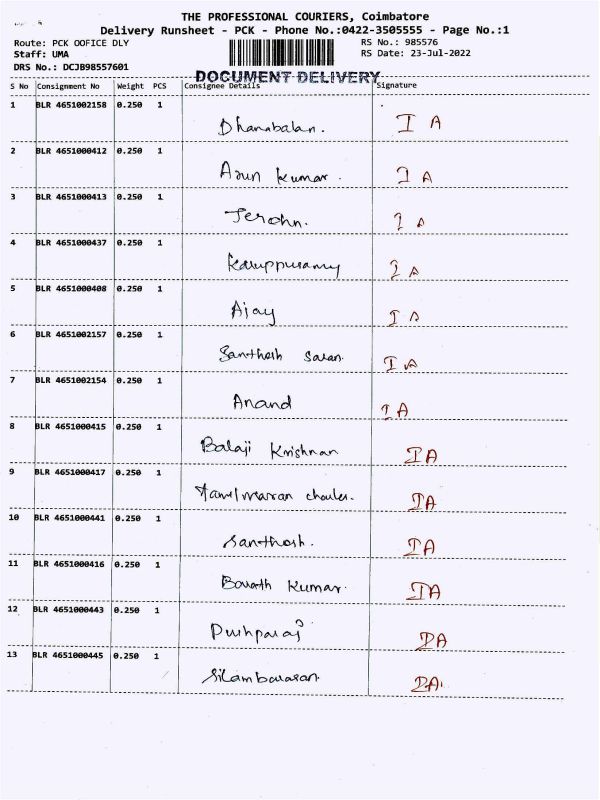 THE PROFESSIONAL COURIERS, Coimbatore
Delivery Runsheet - PCK - Phone No.:0422-3505555 - Page No.:1
Route: PCK OOFICE DLY RS No.: 985576
Staff: UMA RS Date: 23-Jul-2022
DRS No.: DCJB98557601
DOCUMENT DELIVERY
S No Consignment No Weight PCS Consignee Details Signature
1 BLR 4651002158 0.250 1 Dhanabalan. I A
2 BLR 4651000412 0.250 1 Arun Kumar. I A
3 BLR 4651000413 0.250 1 Jerohn. I A
4 BLR 4651000437 0.250 1 Karuppusamy I A
5 BLR 4651000408 0.250 1 Ajay I A
6 BLR 4651002157 0.250 1 Santhosh Saran. I A
7 BLR 4651002154 0.250 1 Anand I A
8 BLR 4651000415 0.250 1 Balaji Krishnan IA
9 BLR 4651000417 0.250 1 IA
10 BLR 4651000441 0.250 1 Santhosh. IA
11 BLR 4651000416 0.250 1 Barath Kumar. IA
12 BLR 4651000443 0.250 1 Pushparaj IA
13 BLR 4651000445 0.250 1 Silambarasan. IA